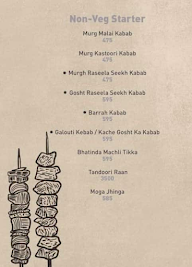 Non-Veg Starter
Murg Malai Kabab
475
Murg Kastoori Kabab
475
• Murgh Raseela Seekh Kabab
575
• Gosht Raseela Seekh Kabab
595
• Barrah Kabab
595
• Galouti Kebab / Kache Gosht Ka Kabab
595
Bhatinda Machli Tikka
595
Tandoori Raan
Moga Jhinga